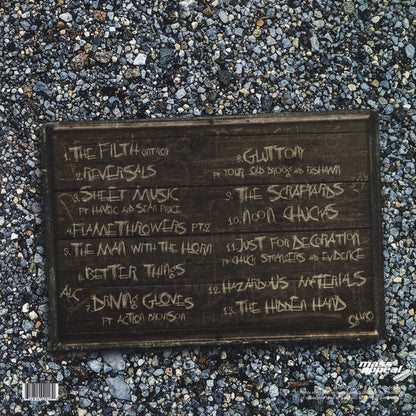 1. THE FILTH (INTRO)
2. REVERSALS
3. SHEET MUSIC
FT HAVOC AND SEAN PRICE
4. FLAMETHROWERS PT. 2
5. THE MAN WITH THE HORN
6. BETTER THINGS
ALC
7. DRIVING GLOVES
FT ACTION BRONSON
8. GLUTTONY
FT YOUR OLD DROOG AND FASHAWN
9. THE SCRAPYARDS
10. NOON CHUCKS
11. JUST FOR DECORATION
FT CHUCK STRANGERS AND EVIDENCE
12. HAZARDOUS MATERIALS
13. THE HIDDEN HAND
OH NO
mass
appeal